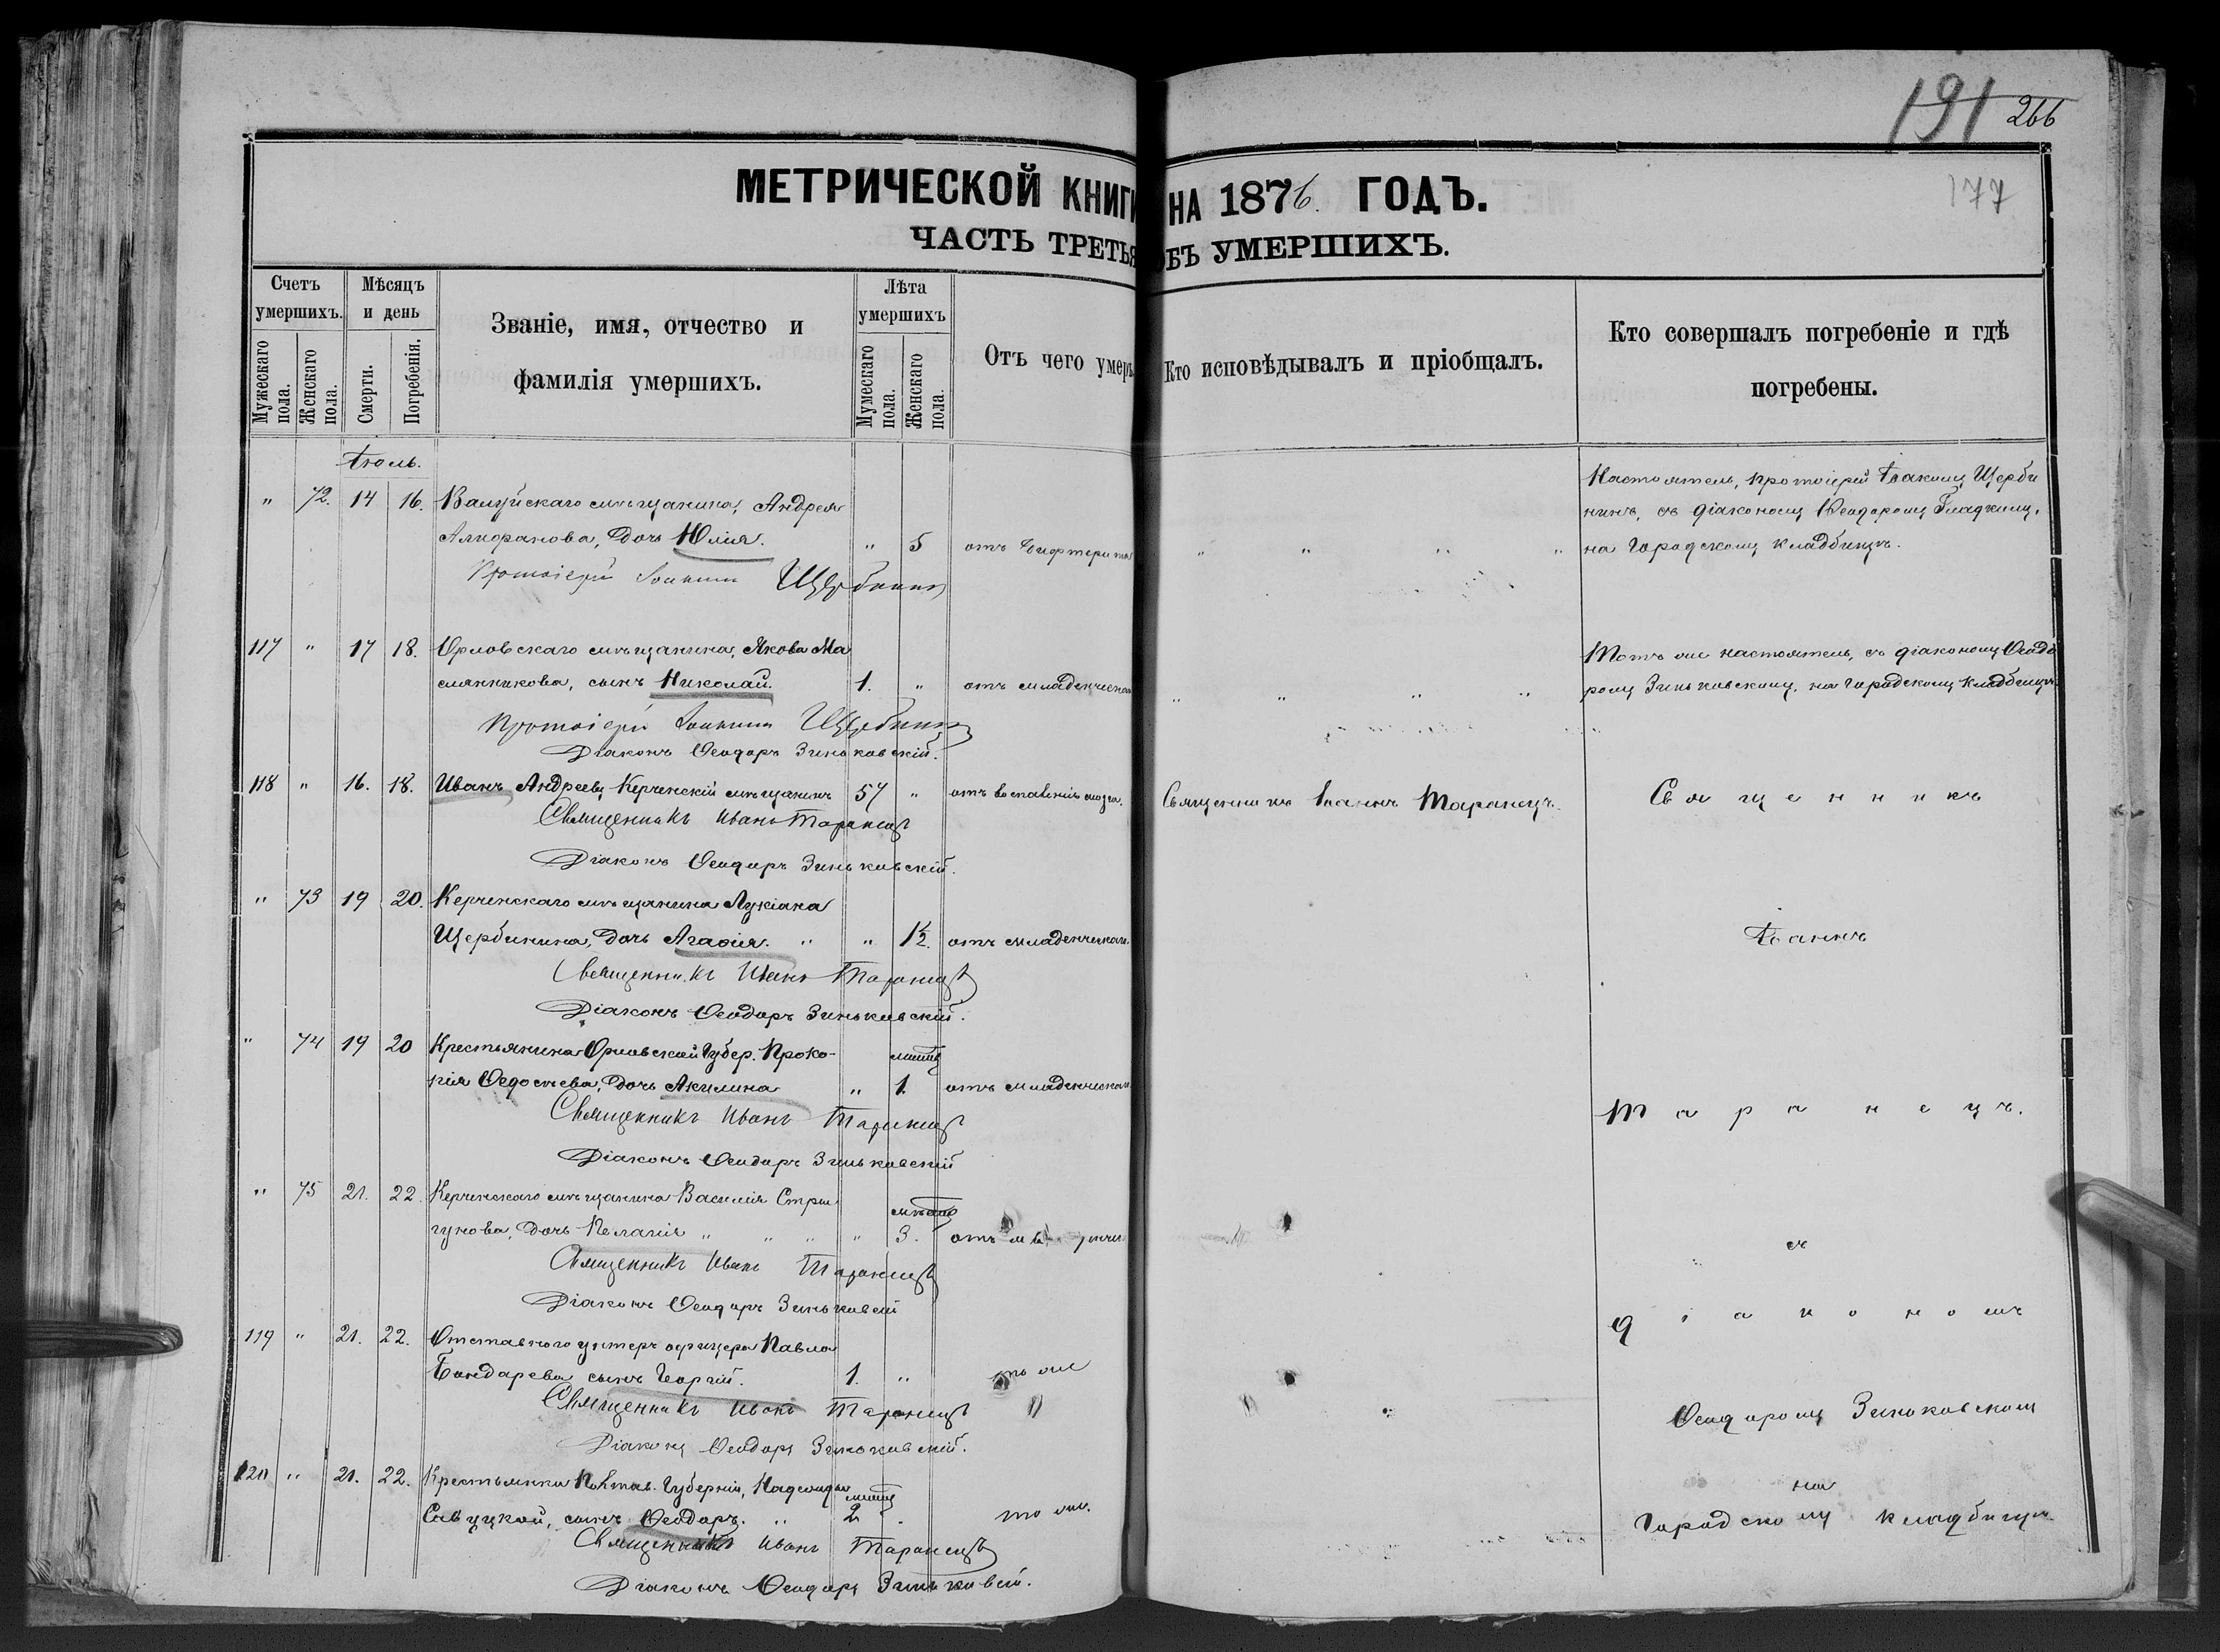 191 266
177
МЕТРИЧЕСКОЙ КНИГИ НА 1876. ГОДЪ.
ЧАСТЬ ТРЕТЬЯ ОБЪ УМЕРШИХЪ.
Счетъ умершихъ.
Мужескаго пола.
Женскаго пола.
Мѣсяцъ и день
Смерти.
Погребенія.
Званіе, имя, отчество и
фамилія умершихъ.
Лѣта умершихъ
Мумескаго пола.
Женскаго пола.
Отъ чего умеръ
Кто исповѣдывалъ и пріобщалъ.
Кто совершалъ погребеніе и гдѣ
погребены.
Іюль.
" 72. 14 16. Валуйскаго мѣщанина, Андрея
Алифанова, дочь Юлія. " 5 отъ дифтерита " " " "
Протоіерей Іоакимъ Щербининъ
Настоятель, протоіерей Іоакимъ Щерби
нинъ, съ діакономъ Ѳеодоромъ Гладкимъ,
на Городскомъ кладбищѣ.
117 " 17 18. Орловскаго мѣщанина, Якова Ма
слянникова, сынъ Николай. 1. " отъ младенческой " " " "
Протоіерей Іоакимъ Щербининъ
Діаконъ Ѳеодоръ Зиньковскій.
Тотъ же настоятель, съ діакономъ Ѳеодо
ромъ Зиньковскимъ, на Городскомъ кладбищѣ
118 " 16. 18. Иванъ Андреевъ, Керченскій мѣщанинъ 54 " отъ воспаленія мозга. Священникъ Іоаннъ Таранецъ. Священникъ
Священникъ Иванъ Таранецъ
Діаконъ Ѳеодоръ Зиньковскій.
" 73 19 20. Керченскаго мѣщанина Лукіана
Щербинина, дочь Агафія. " " 1½. отъ младенческой Іоаннъ
Священникъ Иванъ Таранецъ
Діаконъ Ѳеодоръ Зиньковскій.
" 74 19 20 Крестьянина Орловской Губер. Проко-
пія Ѳедосѣева, дочь Акилина " 1. отъ младенческой
Священникъ Иванъ Таранецъ Таранецъ.
Діаконъ Ѳеодоръ Зиньковскій
" 75 21. 22. Керченскаго мѣщанина Василія Стри
гунова, дочь Пелагія " " " " 3. отъ съ
Священникъ Иванъ Таранецъ
Діаконъ Ѳеодоръ Зиньковскій діакономъ
119 " 21. 22. Отставного унтеръ офицера Павла
Бондарева сынъ Георгій. 1. " то же
Священникъ Иванъ Таранецъ Ѳеодоромъ Зиньковскимъ
Діаконъ Ѳеодоръ Зиньковскій.
120 " 21. 22. Крестьянки Полтав. Губерніи,
сынъ Ѳеодоръ. " 2 то же. на
Священникъ Иванъ Таранецъ Городскомъ кладбищѣ.
Діаконъ Ѳеодоръ Зиньковскій.